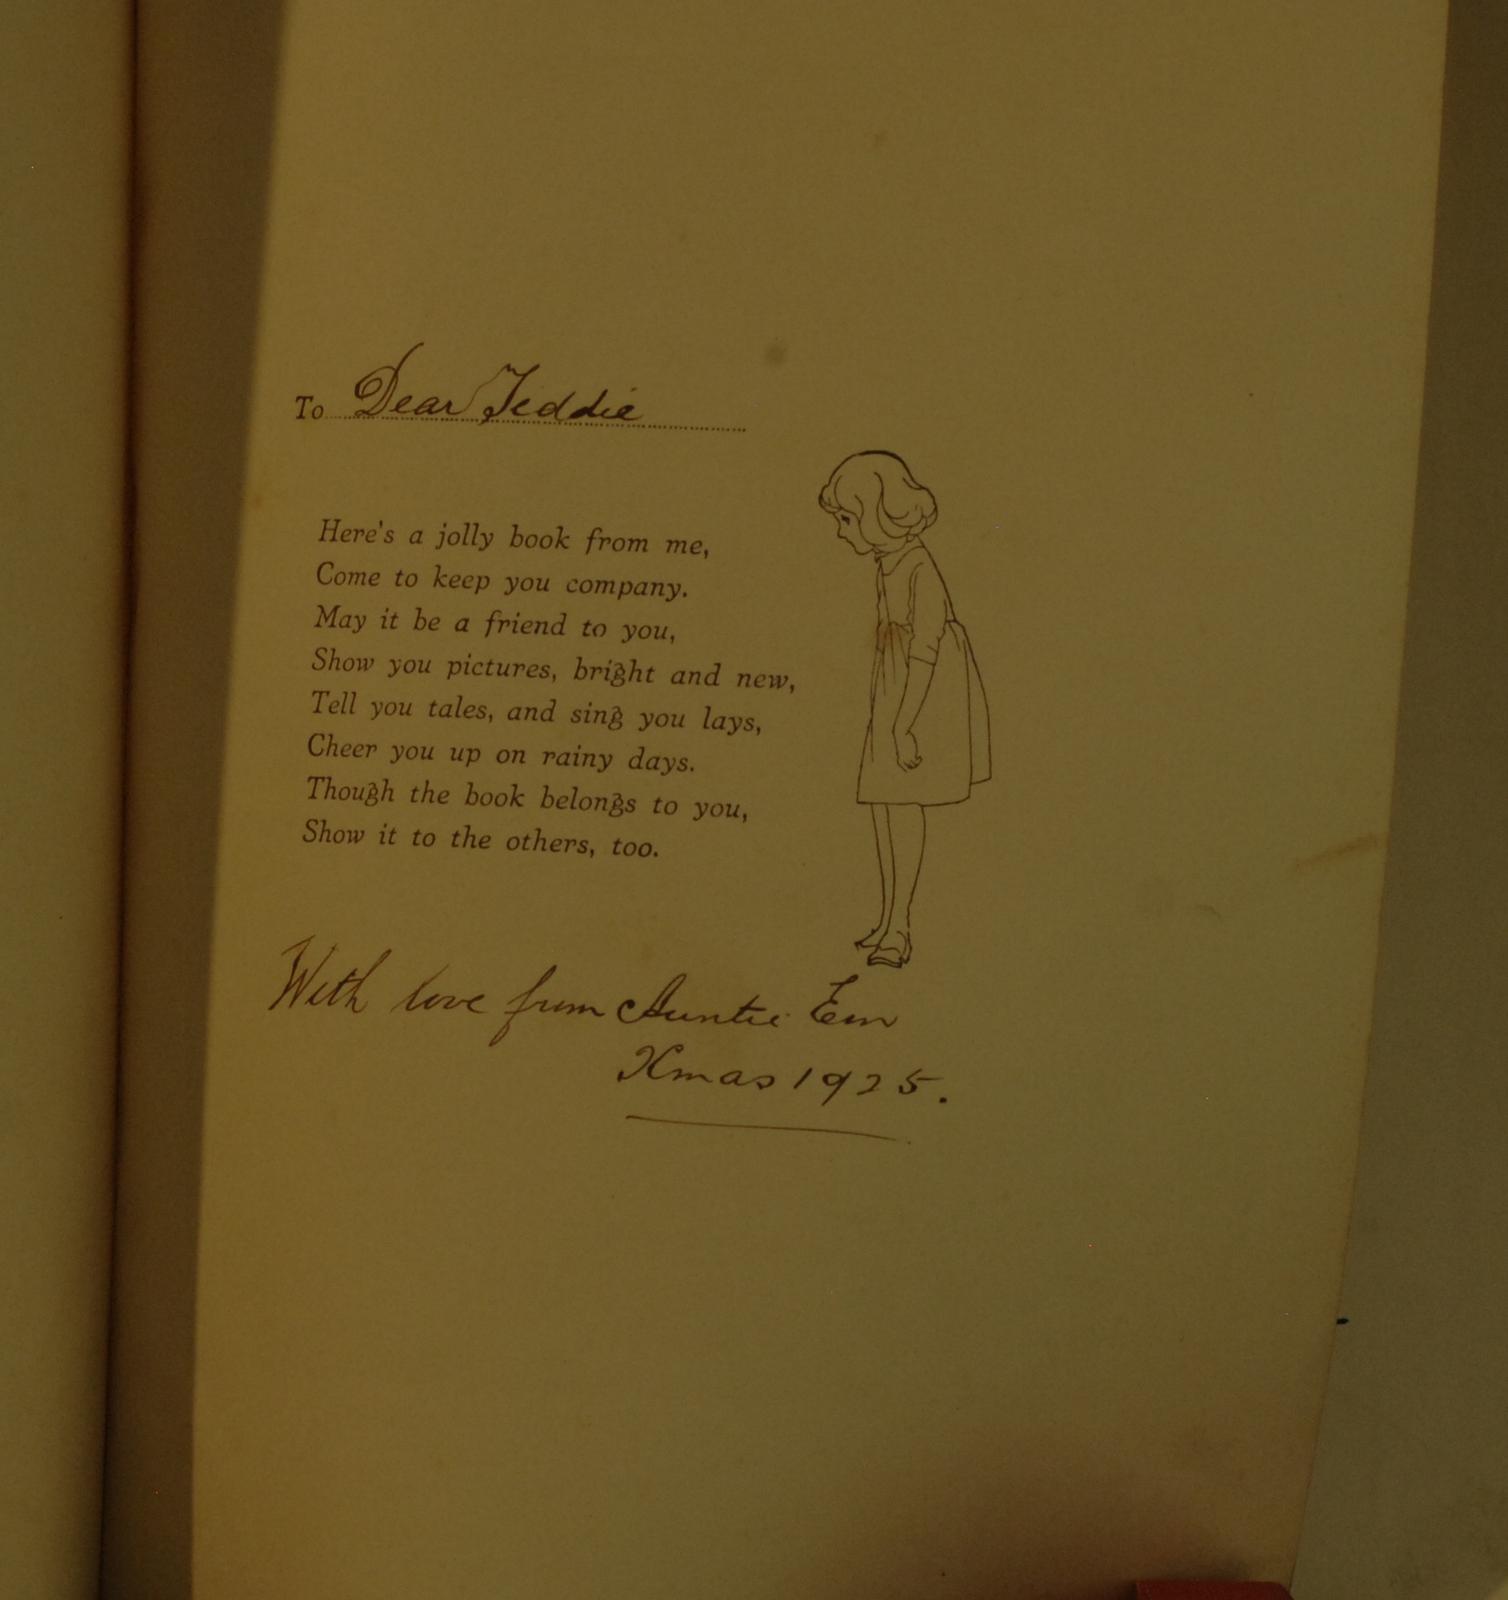 To Dear Teddie
Here's a jolly book from me,
Come to keep you company.
May it be a friend to you,
Show you pictures, bright and new,
Tell you tales, and sing you lays,
Cheer you up on rainy days.
Though the book belongs to you,
Show it to the others, too.
With love from Auntie Em
Xmas 1925.